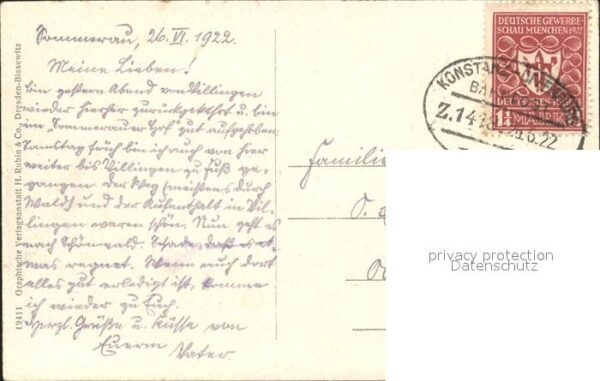 Sommerau, 26. VI. 1922.
Meine Lieben!
Bin gestern Abend von Villingen
wieder hierher zurückgekehrt u. bin
im "Sommerauer Hof" gut aufgehoben.
Samstag früh bin ich auch von hier
weiter bis Villingen zu Fuß ge-
gangen. Der Weg (meistens durch
Wald) und der Aufenthalt in Vil-
lingen waren schön. Nun geht es
nach Schönwald. Schade, daß es et-
was regnet. Wenn auch dort
alles gut erledigt ist, komme
ich wieder zu Euch.
Herzl. Grüße u. Küsse von
Euerm Vater.
19411 Graphische Verlagsanstalt H. Rubin & Co., Dresden-Blasewitz
DEUTSCHE GEWERBE
SCHAU MUENCHEN 1922
DEUTSCHES
1¼ MARK
KONSTANZ
Z.14
6.22
Familie
privacy protection
Datenschutz